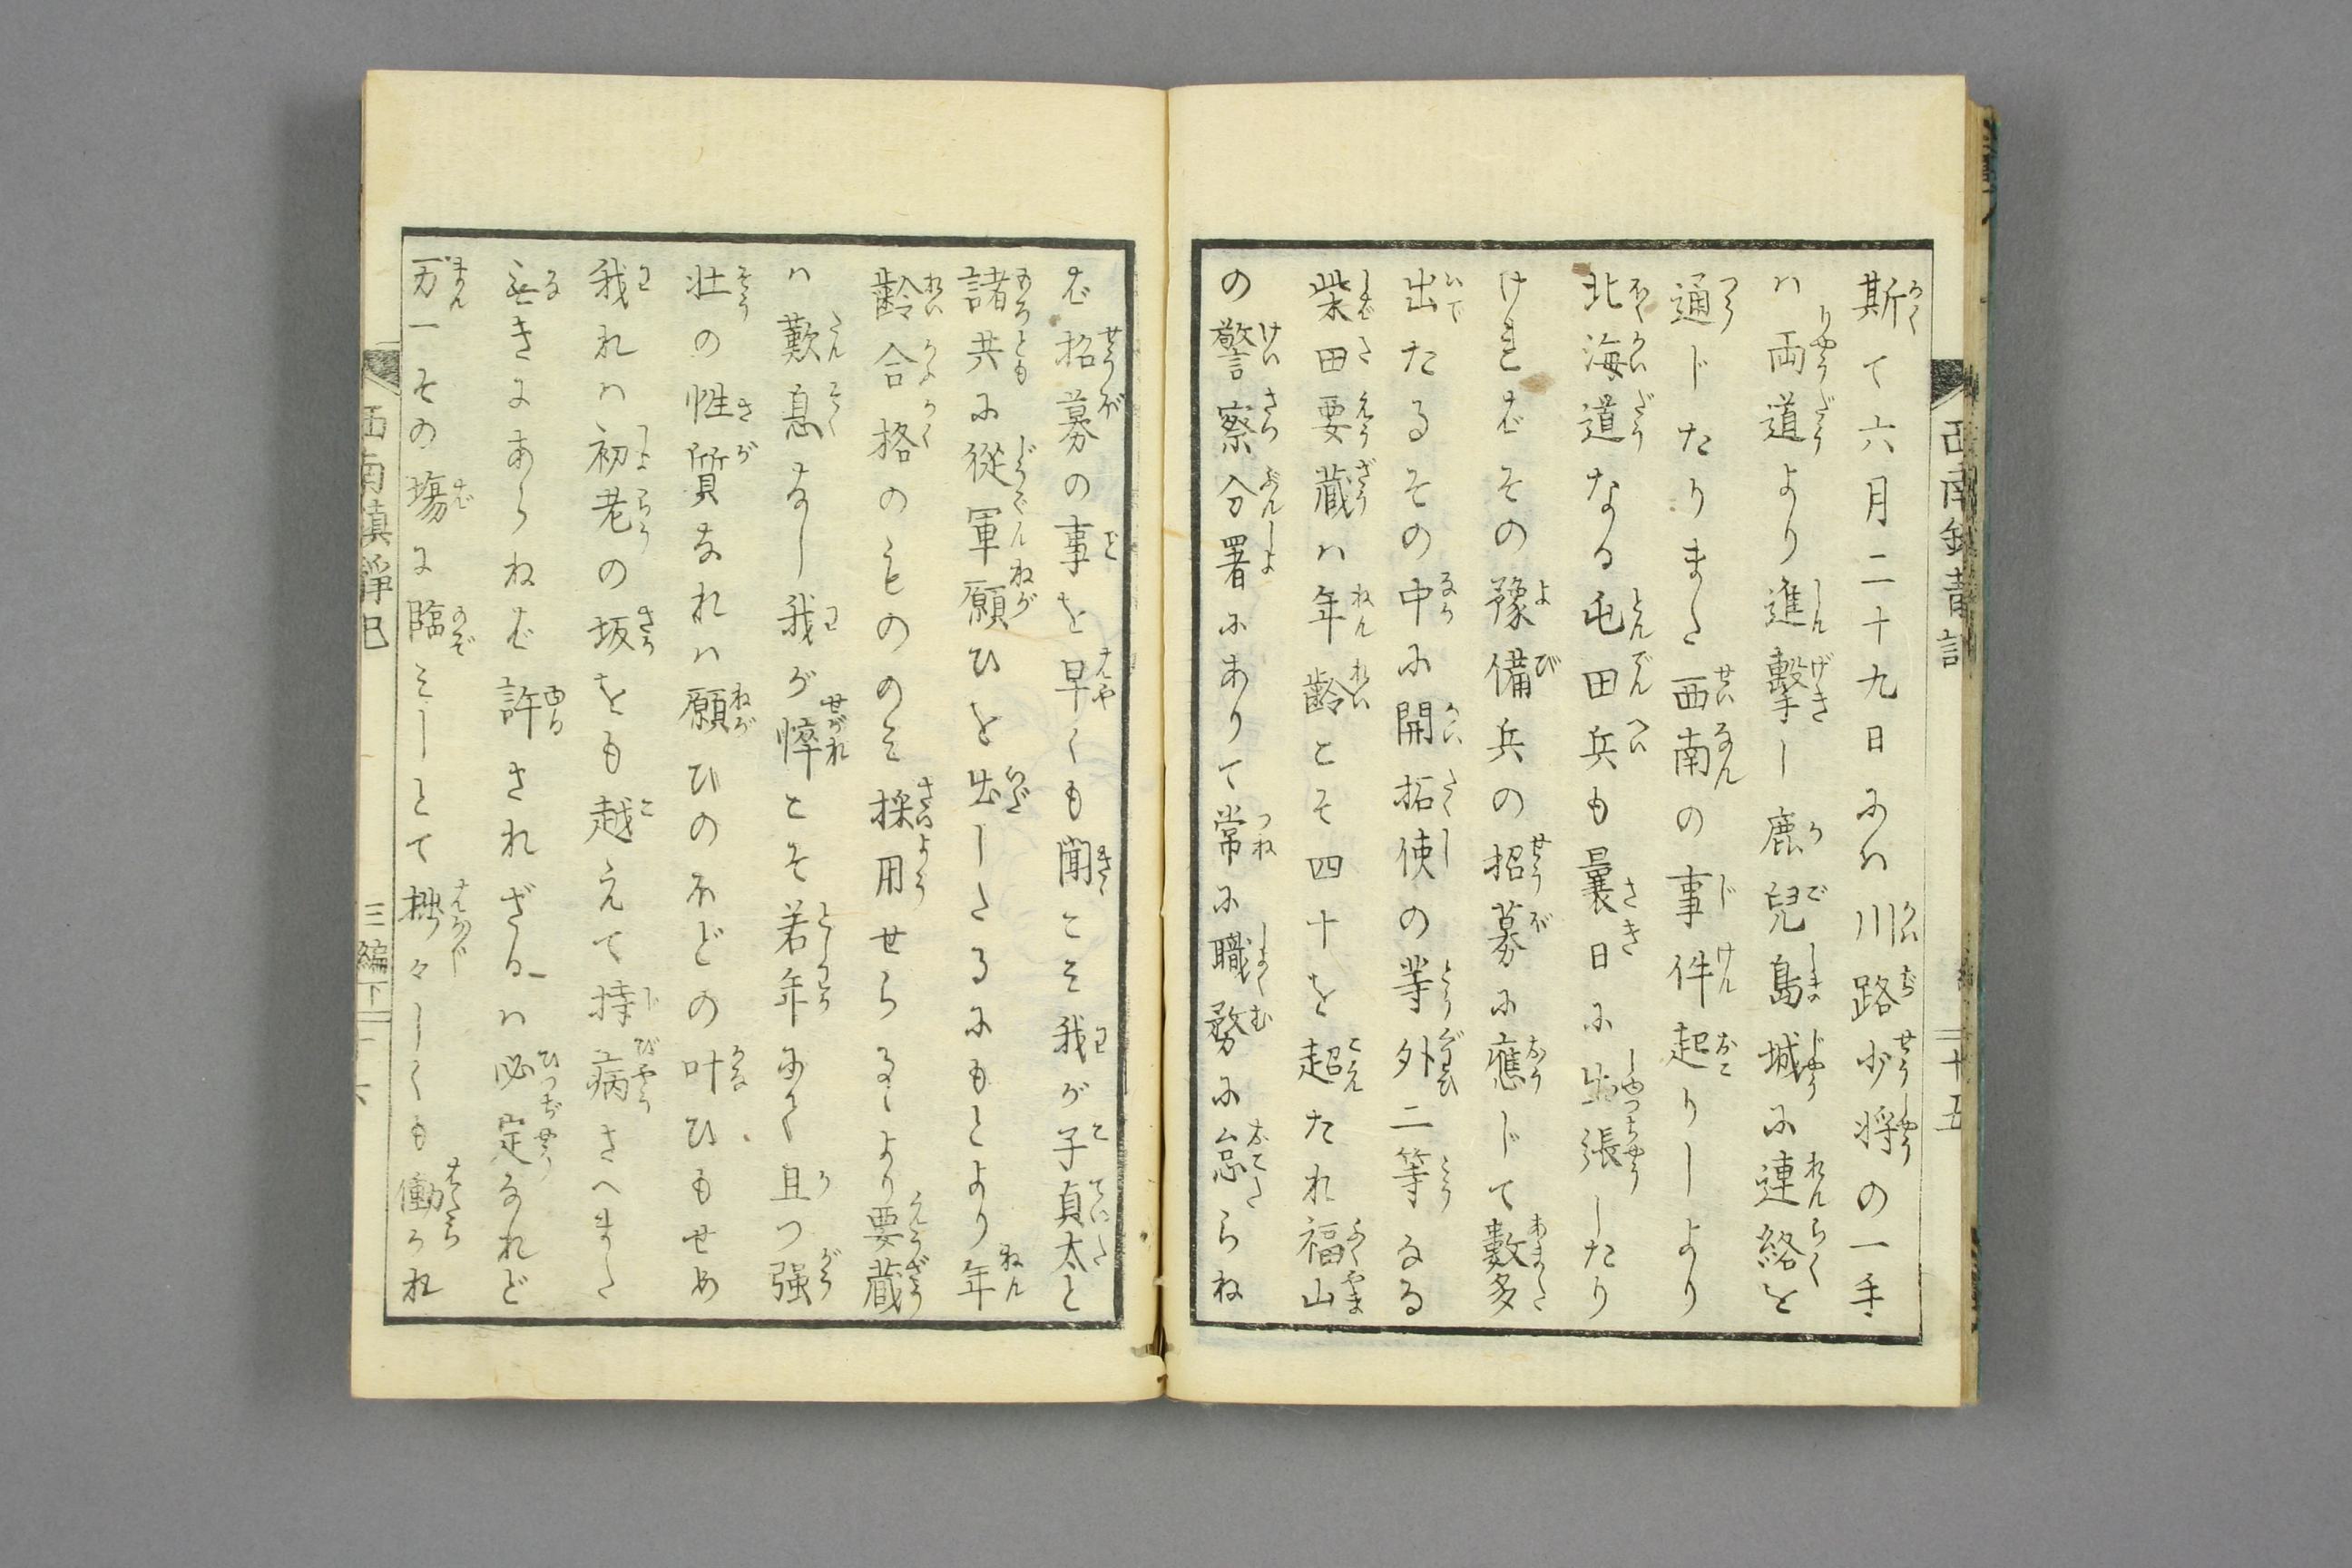 斯て六月二十九日にハ川路少将の一手
ハ両道より進撃し鹿児島城に連絡を
通じたりまた西南の事件起りしより
北海道なる屯田兵も曩日に出張したり
けれバその豫備兵の招募に應じて數多
出たるその中に開拓使の等外二等なる
柴田要蔵ハ年齢こそ四十を超たれ福山
の警察分署にありて常に職務に怠らね
ば招募の事を早くも聞こそ我が子貞太と
諸共に從軍願ひを出したるにもとより年
齢合格のもののミ採用せらるゝより要蔵
ハ歎息なし我が悴こそ若年にて且つ强
壮の性質なれハ願ひのほどの叶ひもせめ
我れハ初老の坂をも越えて持病さへまた
無きにあらねば許されざるハ必定なれど
万一その場に臨ミしとて拙々しくも働かれ
西南鎮静記
十五
西南鎮静記
三編下